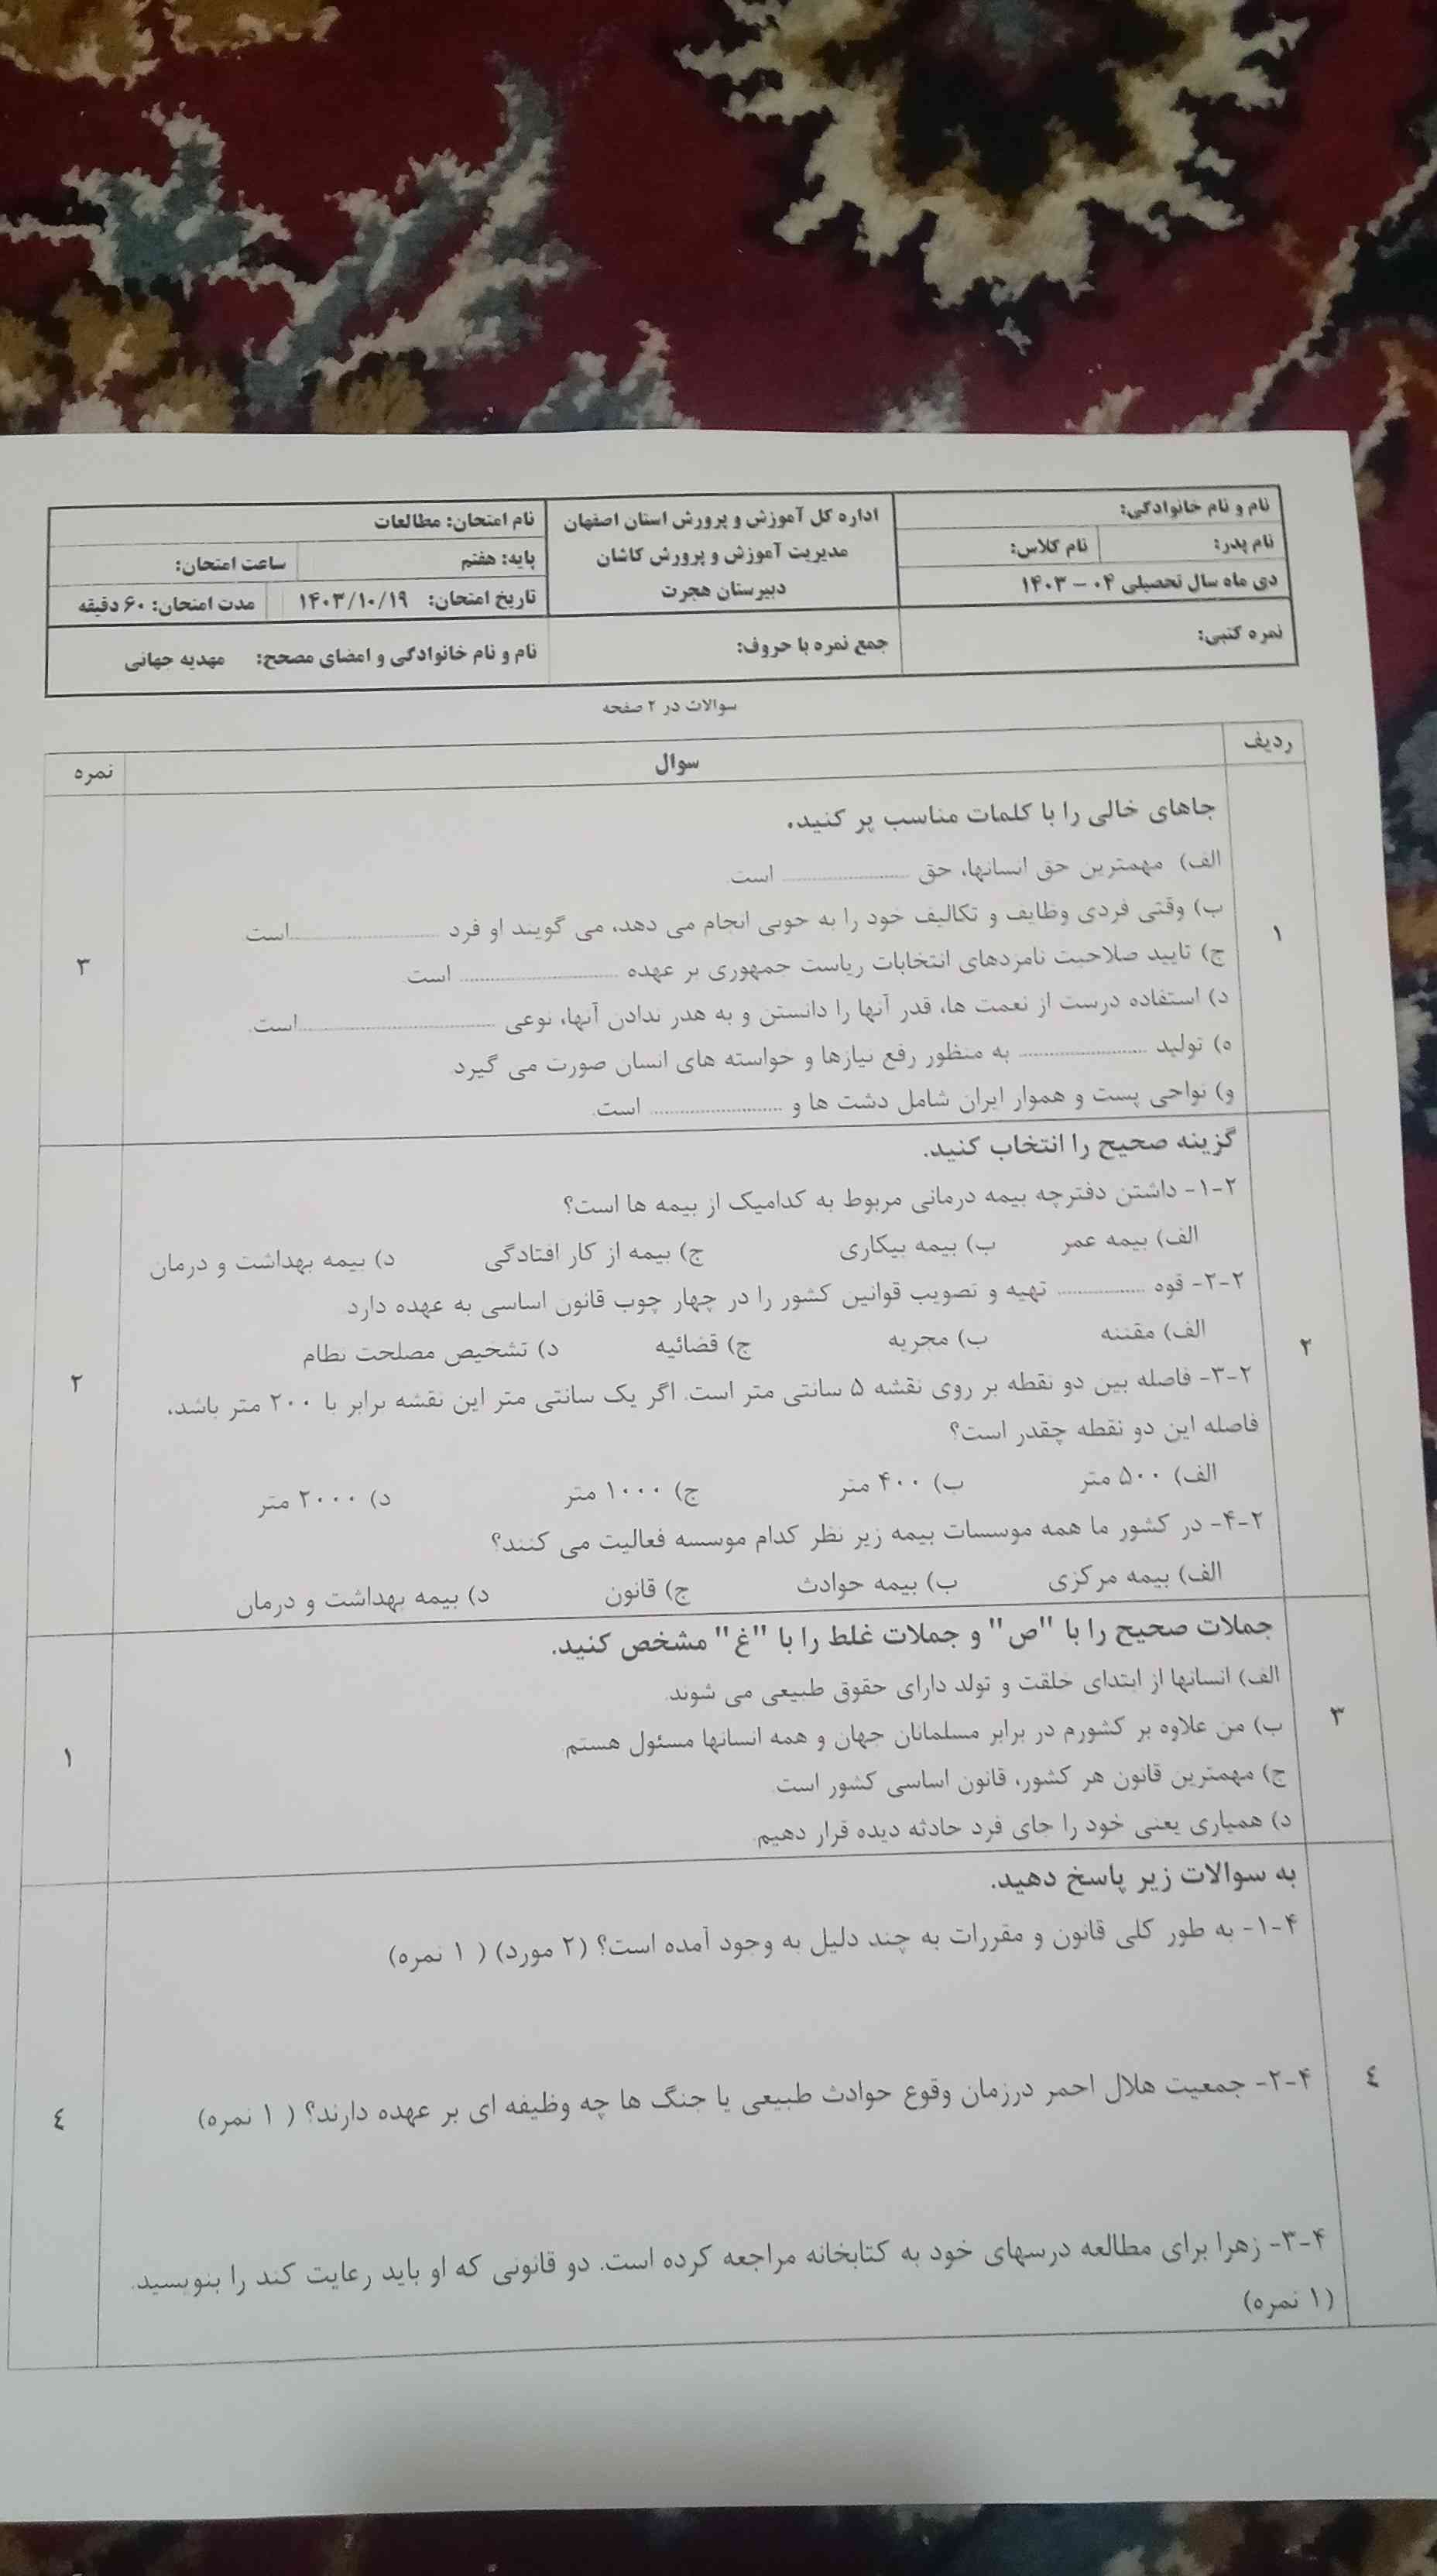 نام و نام خانوادگی:
نام پدر: نام کلاس:
دی ماه سال تحصیلی ۰۴ – ۱۴۰۳
اداره کل آموزش و پرورش استان اصفهان
مدیریت آموزش و پرورش کاشان
دبیرستان هجرت
نام امتحان: مطالعات
پایه: هفتم ساعت امتحان:
تاریخ امتحان: ۱۴۰۳/۱۰/۱۹ مدت امتحان: ۶۰ دقیقه
نمره کتبی: جمع نمره با حروف: نام و نام خانوادگی و امضای مصحح: مهدیه جهانی
سوالات در ۲ صفحه
ردیف سوال نمره
جاهای خالی را با کلمات مناسب پر کنید.
الف) مهمترین حق انسانها، حق .................... است
ب) وقتی فردی وظایف و تکالیف خود را به خوبی انجام می دهد، می گویند او فرد ....................است
ج) تایید صلاحیت نامزدهای انتخابات ریاست جمهوری بر عهده .................... است
د) استفاده درست از نعمت ها، قدر آنها را دانستن و به هدر ندادن آنها، نوعی ....................است.
ه) تولید .................... به منظور رفع نیازها و خواسته های انسان صورت می گیرد
و) نواحی پست و هموار ایران شامل دشت ها و .................... است.
۱ ۳
گزینه صحیح را انتخاب کنید.
۲-۱- داشتن دفترچه بیمه درمانی مربوط به کدامیک از بیمه ها است؟
الف) بیمه عمر ب) بیمه بیکاری ج) بیمه از کار افتادگی د) بیمه بهداشت و درمان
۲-۲- قوه ............... تهیه و تصویب قوانین کشور را در چهار چوب قانون اساسی به عهده دارد
الف) مقننه ب) مجریه ج) قضائیه د) تشخیص مصلحت نظام
۲-۳- فاصله بین دو نقطه بر روی نقشه ۵ سانتی متر است. اگر یک سانتی متر این نقشه برابر با ۲۰۰ متر باشد،
فاصله این دو نقطه چقدر است؟
الف) ۵۰۰ متر ب) ۴۰۰ متر ج) ۱۰۰۰ متر د) ۲۰۰۰ متر
۲-۴- در کشور ما همه موسسات بیمه زیر نظر کدام موسسه فعالیت می کنند؟
الف) بیمه مرکزی ب) بیمه حوادث ج) قانون د) بیمه بهداشت و درمان
۲ ۲
جملات صحیح را با "ص" و جملات غلط را با "غ" مشخص کنید.
الف) انسانها از ابتدای خلقت و تولد دارای حقوق طبیعی می شوند.
ب) من علاوه بر کشورم در برابر مسلمانان جهان و همه انسانها مسئول هستم
ج) مهمترین قانون هر کشور، قانون اساسی کشور است
د) همیاری یعنی خود را جای فرد حادثه دیده قرار دهیم.
۳ ۱
به سوالات زیر پاسخ دهید.
۴-۱- به طور کلی قانون و مقررات به چند دلیل به وجود آمده است؟ (۲ مورد) ( ۱ نمره)
۴-۲- جمعیت هلال احمر درزمان وقوع حوادث طبیعی یا جنگ ها چه وظیفه ای بر عهده دارند؟ ( ۱ نمره)
۴-۳- زهرا برای مطالعه درسهای خود به کتابخانه مراجعه کرده است. دو قانونی که او باید رعایت کند را بنویسید.
(۱ نمره)
٤ ٤